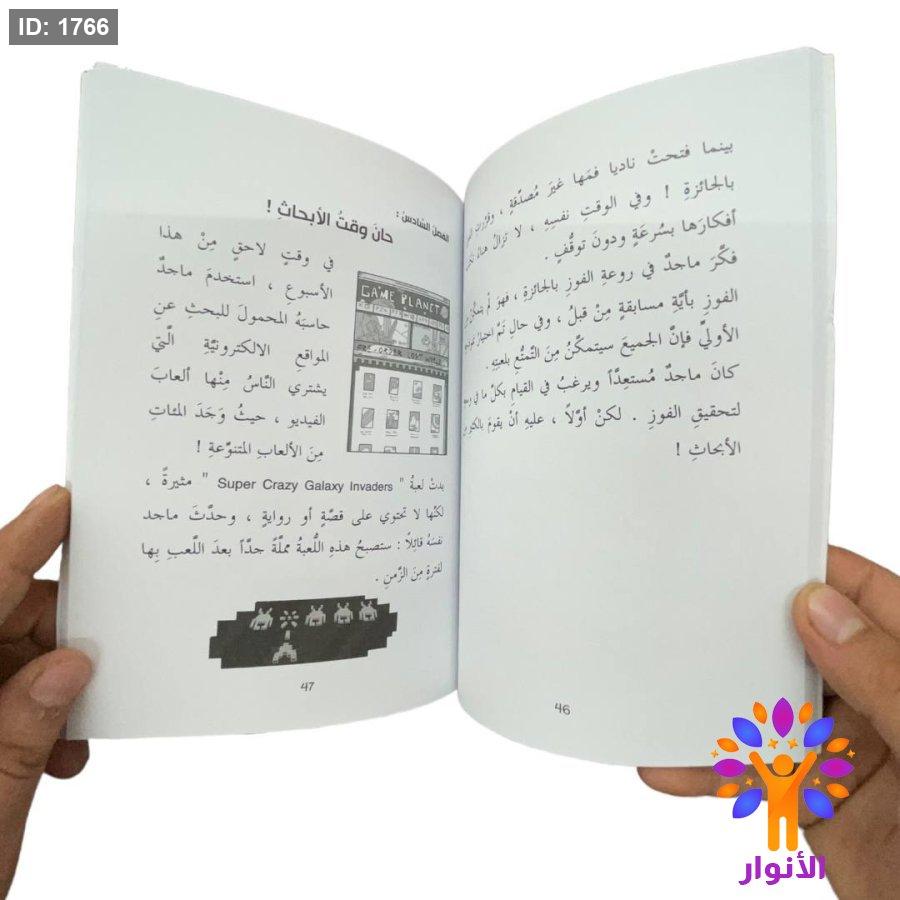 ID: 1766
بينما فتحتْ ناديا فمَها غيرَ مُصدِّقةٍ ، وقرَّرت
بالجائزةِ ! وفي الوقتِ نفسِهِ ، لا تزالُ هناك
أفكارَها بسُرعَةٍ ودونَ توقُّفٍ .
فكَّرَ ماجدٌ في روعةِ الفوزِ بالجائزةِ ، فهو لم يتمكَّن
الفوزِ بأيَّةِ مسابقةٍ مِنْ قبلُ ، وفي حالِ تمَّ
الأوليِّ فإنَّ الجميعَ سيتمكَّنُ مِنَ التَّمتُّعِ بلعبتِهِ .
كانَ ماجدٌ مُستعِدَّاً ويرغبُ في القيامِ بكلِّ ما في
لتحقيقِ الفوزِ . لكنْ أوَّلًا ، عليهِ أنْ يقومَ
الأبحاثِ !
46
الفصل السّادسُ :
حانَ وقتُ الأبحاثِ !
في وقتٍ لاحقٍ مِنْ هذا
الأسبوعِ ، استخدمَ ماجدٌ
حاسبَهُ المحمولَ للبحثِ عنِ
المواقعِ الالكترونيَّةِ الَّتي
يشتري النَّاسُ مِنْها ألعابَ
الفيديو ، حيثُ وَجَدَ المئاتِ
مِنَ الألعابِ المتنوّعةِ !
GAME PLANET
PRE-ORDER LOST WORLD
بدتْ لعبةُ " Super Crazy Galaxy Invaders " مثيرةً ،
لكنَّها لا تحتوي على قصَّةٍ أو روايةٍ ، وحدَّثَ ماجد
نفسَهُ قائِلًا : ستصبحُ هذهِ اللُّعبةُ مملَّةً جدَّاً بعدَ اللَّعبِ بِها
لفترةٍ مِنَ الزَّمنِ .
47
الأنوار